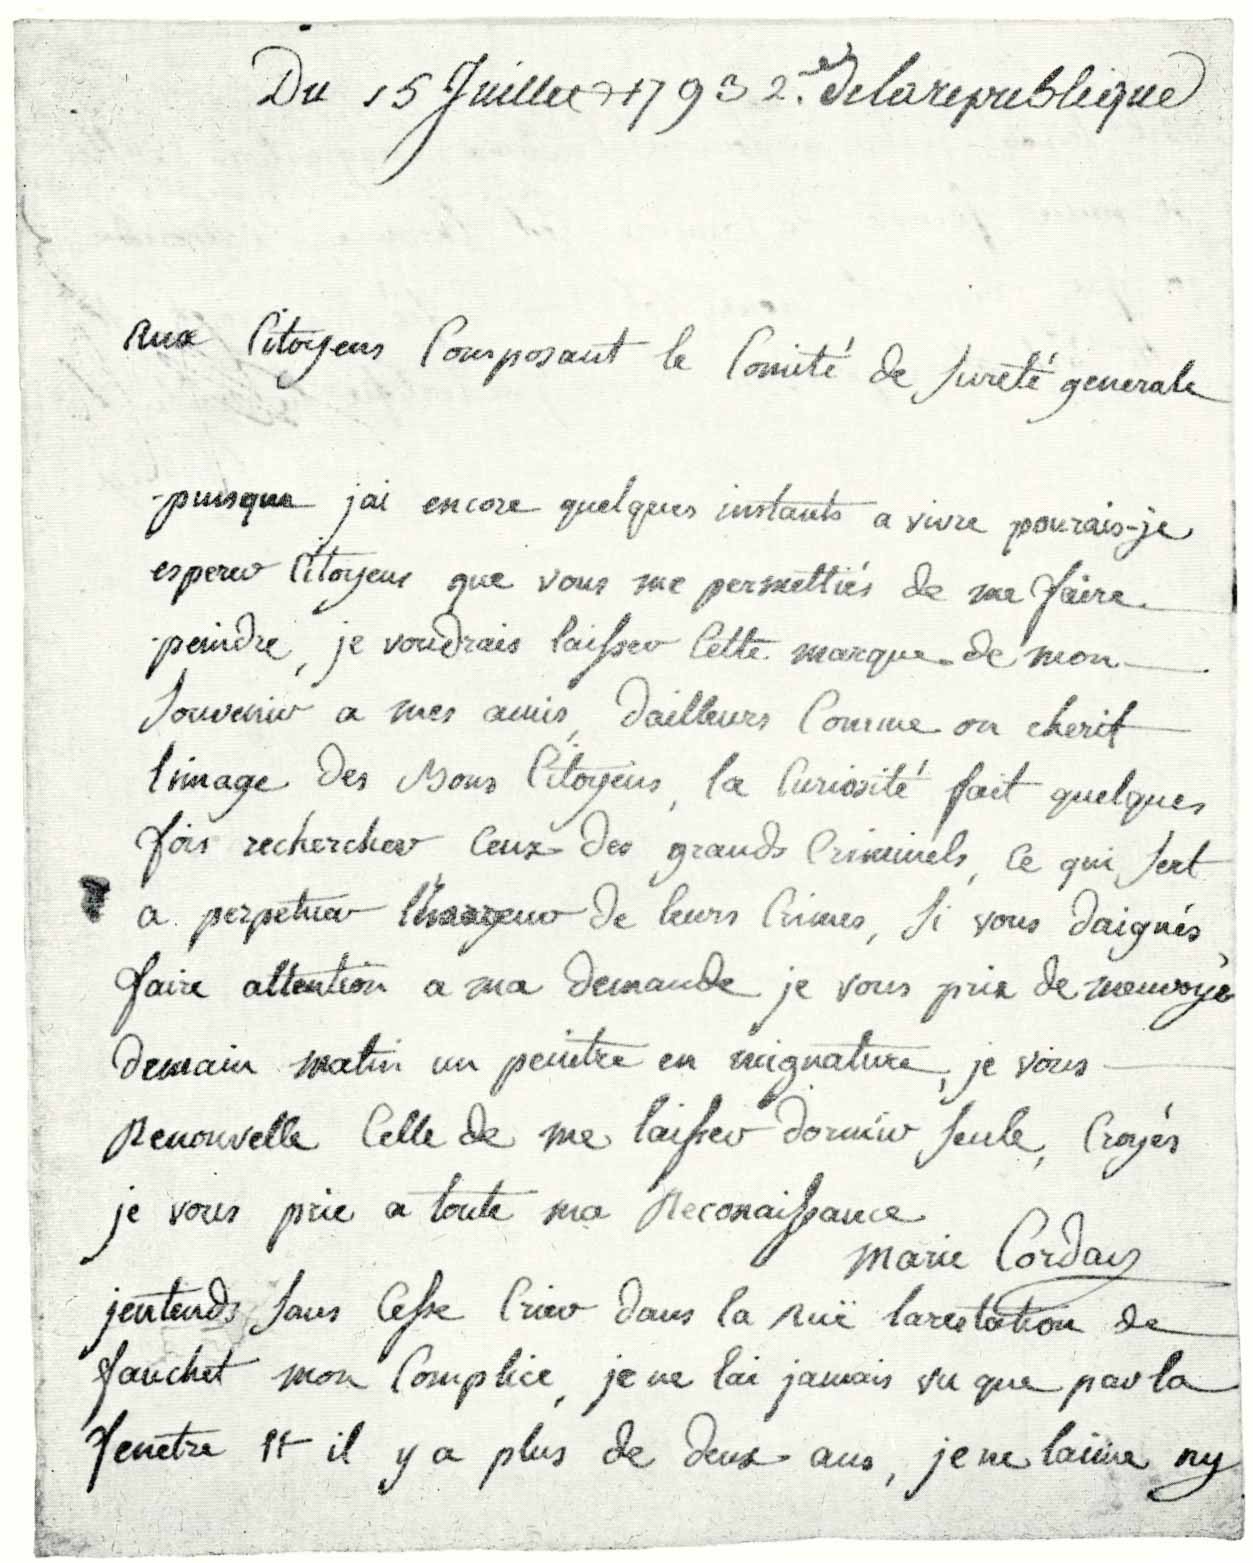 Du 15 Juillet 1793 2.e de la republique
Aux Citoyens Composant le Comité de Sureté generale
puisque jai encore quelques instants a vivre pourais-je
esperer Citoyens que vous me permettiés de me faire
peindre, je voudrais laisser Cette marque de mon
Souvenir a mes amis, dailleurs Comme on cherit
limage des Bons Citoyens, la Curiosité fait quelques
fois rechercher Ceux des grands Criminels, Ce qui Sert
a perpetuer lhorreur de leurs Crimes, Si vous daignés
faire attention a ma demande je vous prie de menvoyer
demain matin un peintre en mignature, je vous
Renouvelle Celle de me laisser dormir Seule, Croyés
je vous prie a toute ma Reconaissance
Marie Corday
jentends Sans Cesse Crier dans la Ruë larestation de
fauchet mon Complice, je ne lai jamais vu que par la
fenetre et il y a plus de deux ans, je ne laime ny